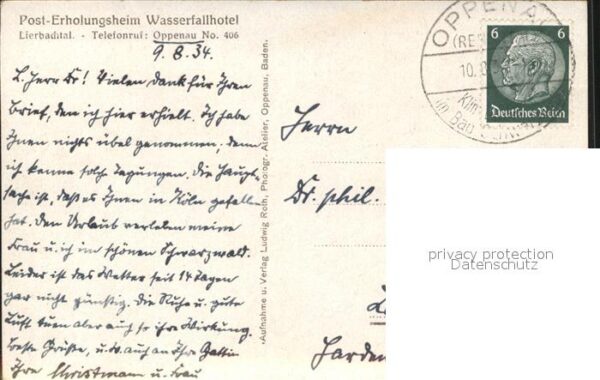 Post-Erholungsheim Wasserfallhotel
Lierbachtal. - Telefonruf: Oppenau No. 406
9. 8. 34.
L. Herr Dr! Vielen Dank für Ihren
Brief, den ich hier erhielt. Ich habe
Ihnen nichts übel genommen, denn
ich kenne solche Tagungen. Die Haupt
sache ist, daß es Ihnen in Köln gefallen
hat. Den Urlaub verleben meine
Frau u. ich im schönen Schwarzwald.
Leider ist das Wetter seit 14 Tagen
gar nicht günstig. Die Ruhe u. gute
Luft tuen aber auch so ihre Wirkung.
Beste Grüße, u. a. auch an Ihre Gattin
Ihre Christmann u. Frau
Aufnahme u. Verlag Ludwig Roth, Photogr. Atelier, Oppenau, Baden.
OPPENAU
10. 8
6 6
Deutsches Reich
Herrn
Dr. phil.
privacy protection
Datenschutz